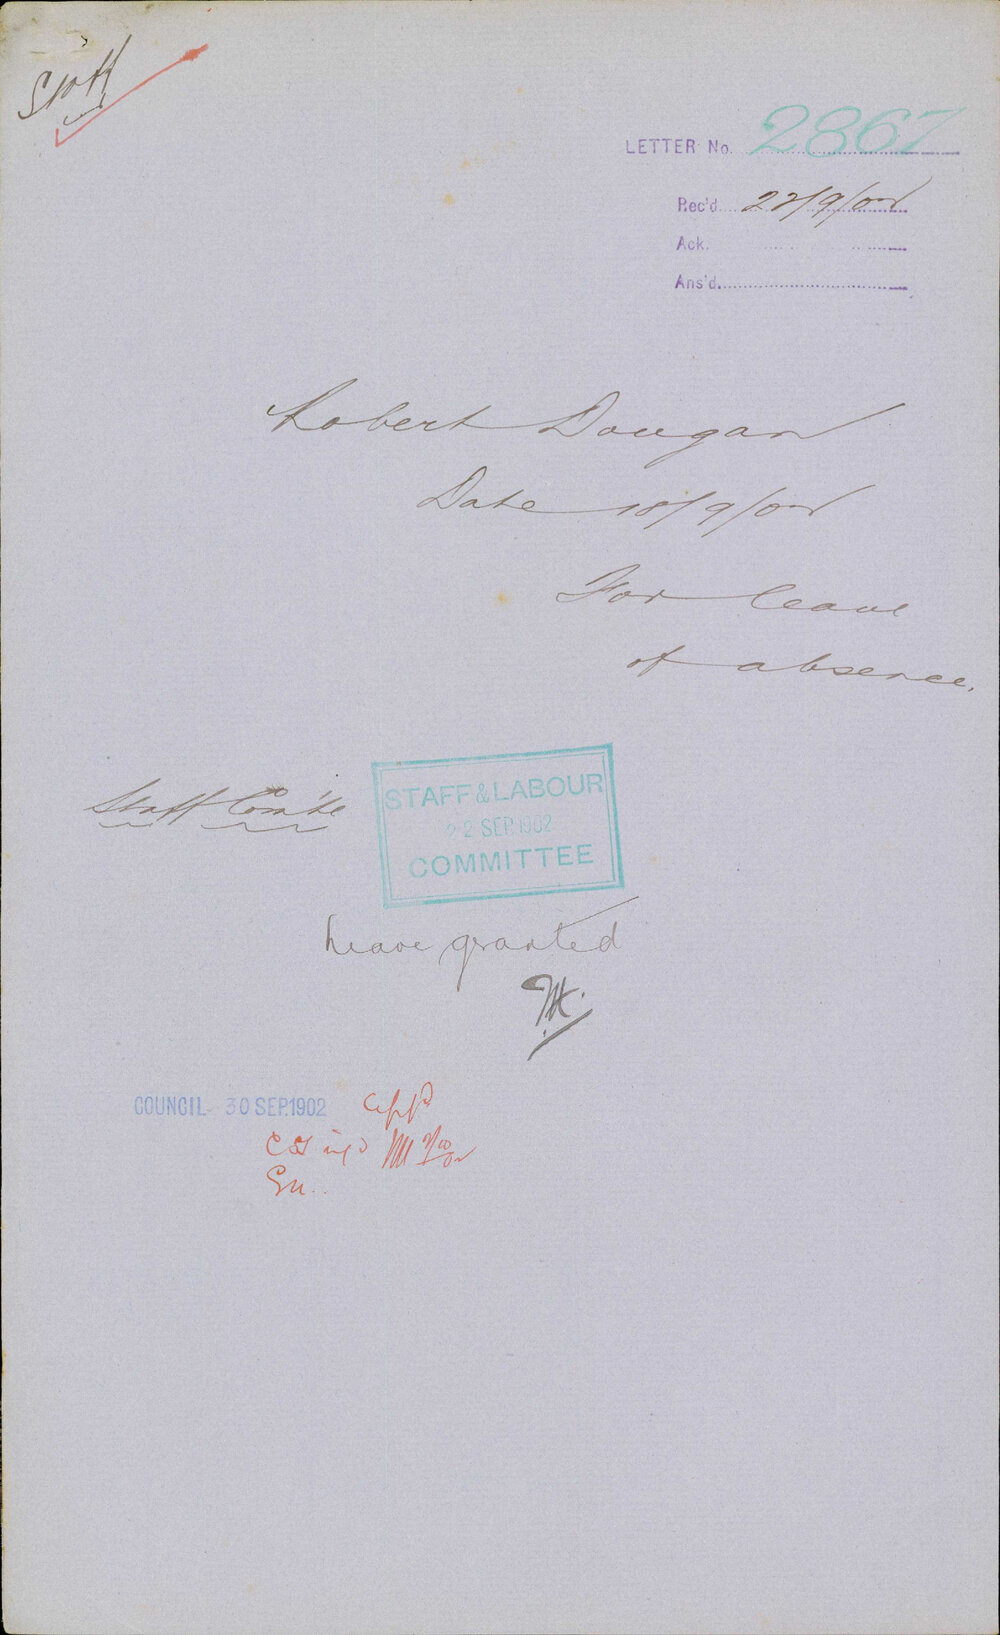 Staff
LETTER No. 2867
Rec'd. 22/9/02
Ack.
Ans'd.
Robert Dougan
Date 18/9/02
For leave
of absence.
Staff Com'te
STAFF & LABOUR
22 SEP. 1902
COMMITTEE
Leave granted
COUNCIL 30 SEP. 1902 app